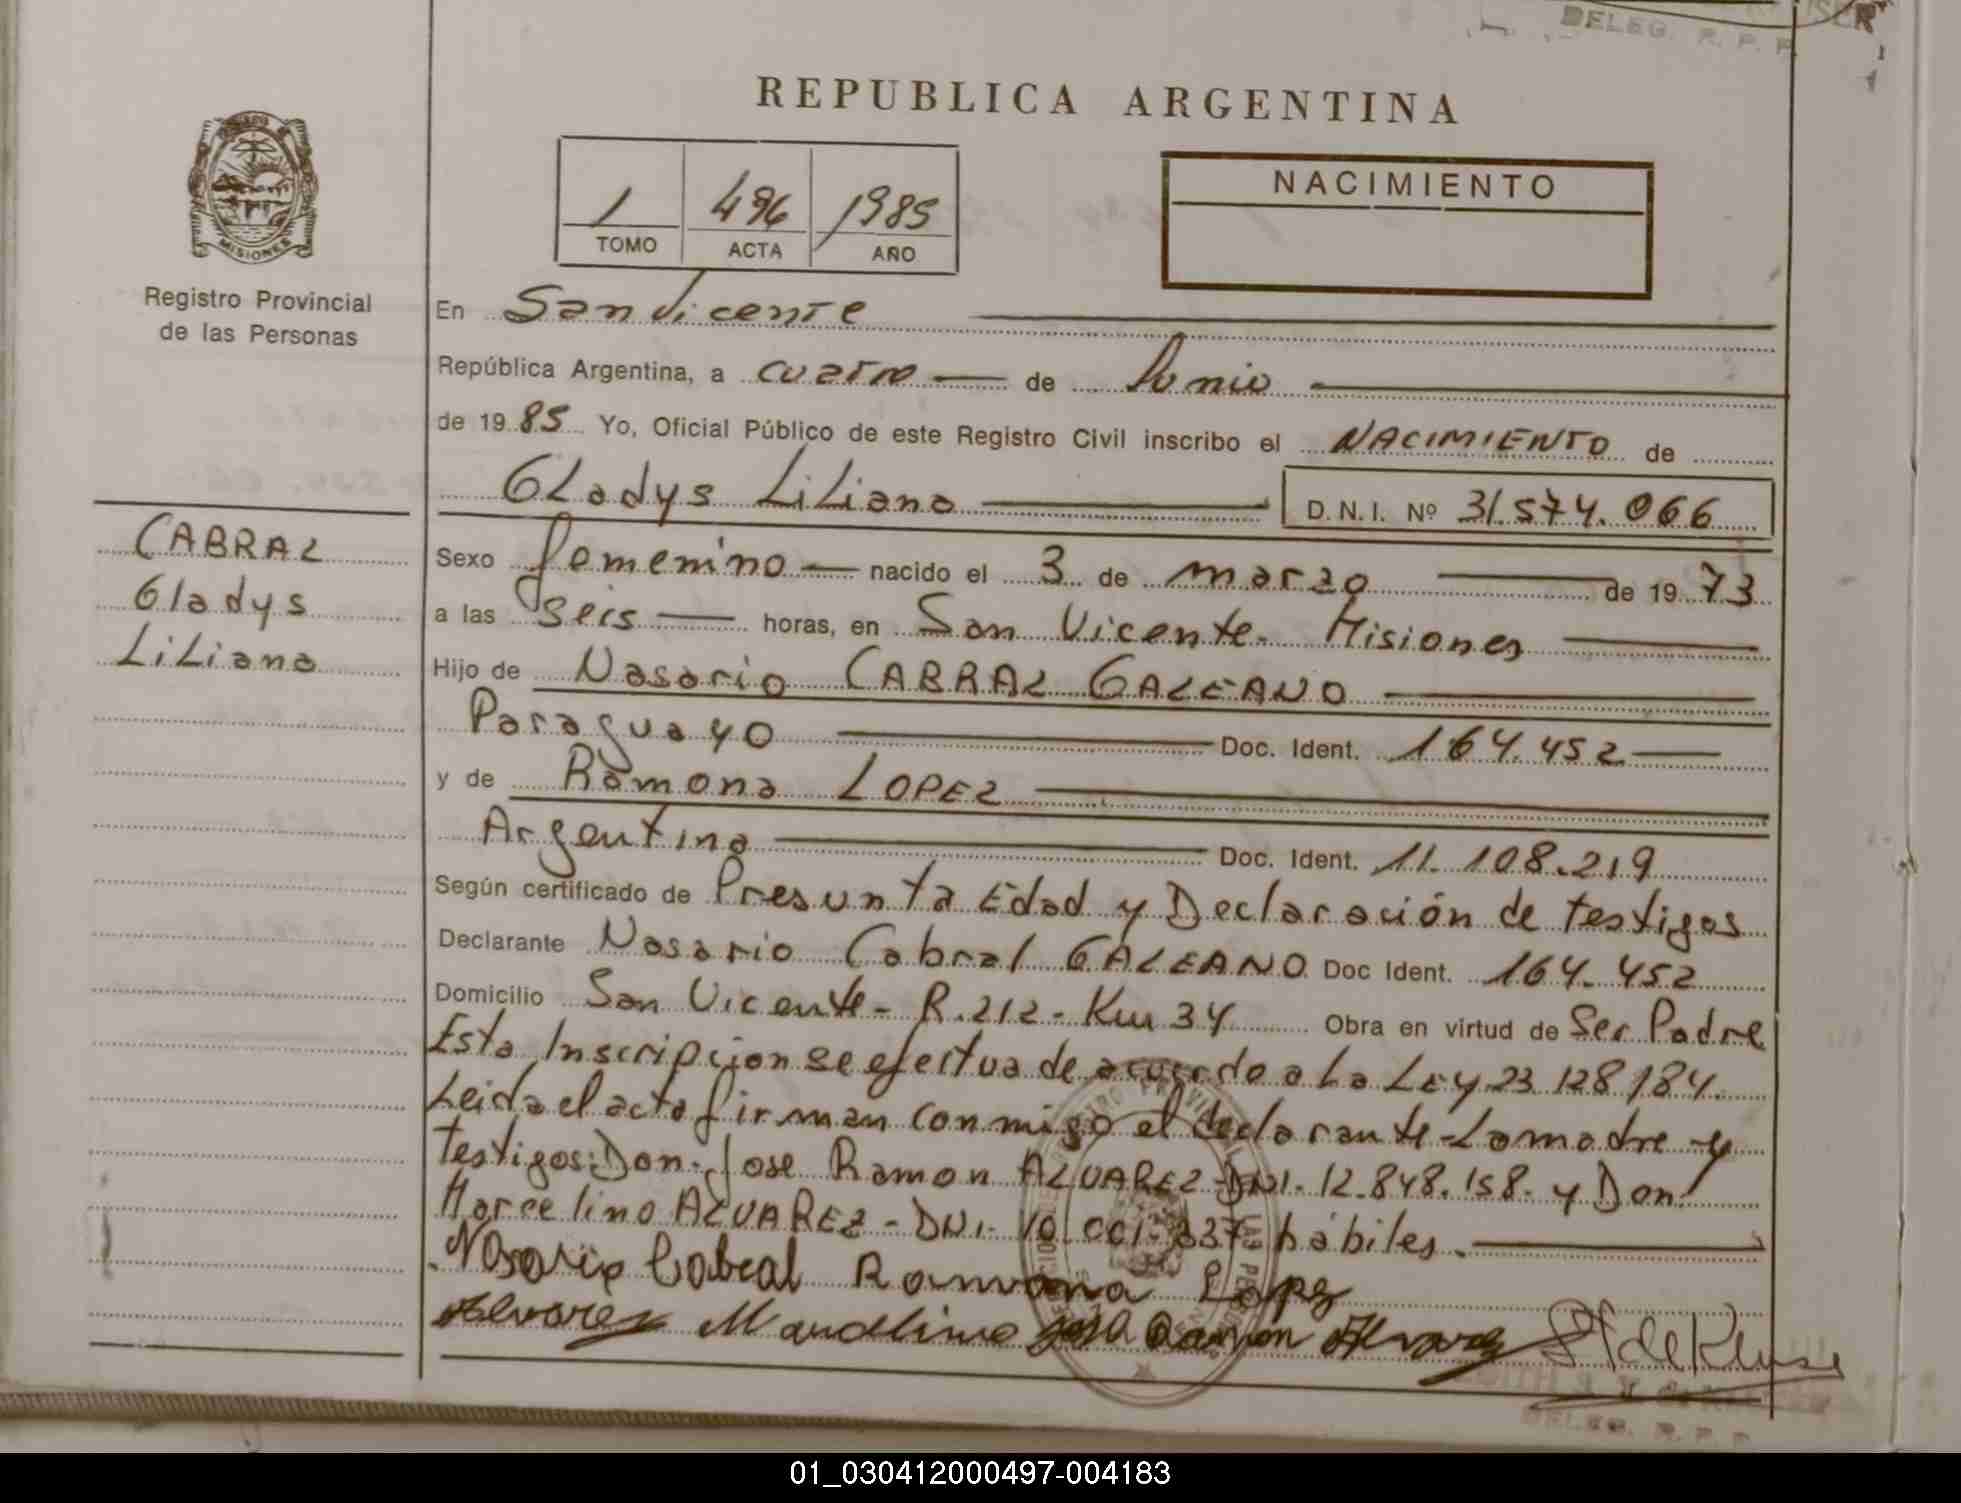 DELEG. R. P. P.
REPUBLICA ARGENTINA
MISIONES
Registro Provincial
de las Personas
1 496 1985
TOMO ACTA AÑO
NACIMIENTO
En San Vicente
República Argentina, a cuatro de Junio
de 19 85 Yo, Oficial Público de este Registro Civil inscribo el NACIMIENTO de
Gladys Liliana D.N.I. Nº 31.574.066
CABRAL
Gladys
Liliana
Sexo femenino nacido el 3 de marzo de 19 73
a las seis horas, en San Vicente - Misiones
Hijo de Nasario CABRAL GALEANO
Paraguayo Doc. Ident. 164.452
y de Ramona LOPEZ
Argentina Doc. Ident. 11.108.219
Según certificado de Presunta Edad y Declaración de testigos
Declarante Nasario Cabral GALEANO Doc Ident. 164.452
Domicilio San Vicente - R.212 - Km 34 Obra en virtud de Ser Padre
Esta Inscripcion se efectua de acuerdo a la Ley 23 128/84.
Leida el acta firman conmigo el declarante - La madre y
testigos: Don Jose Ramon ALVAREZ DNI. 12.848.158. y Don
Marcelino ALVAREZ - DNI. 10.001.337 hábiles.
Nasario Cabral Ramona Lopez
Alvarez Jose Ramon Alvarez
DELEG. R. P. P.
01_030412000497-004183